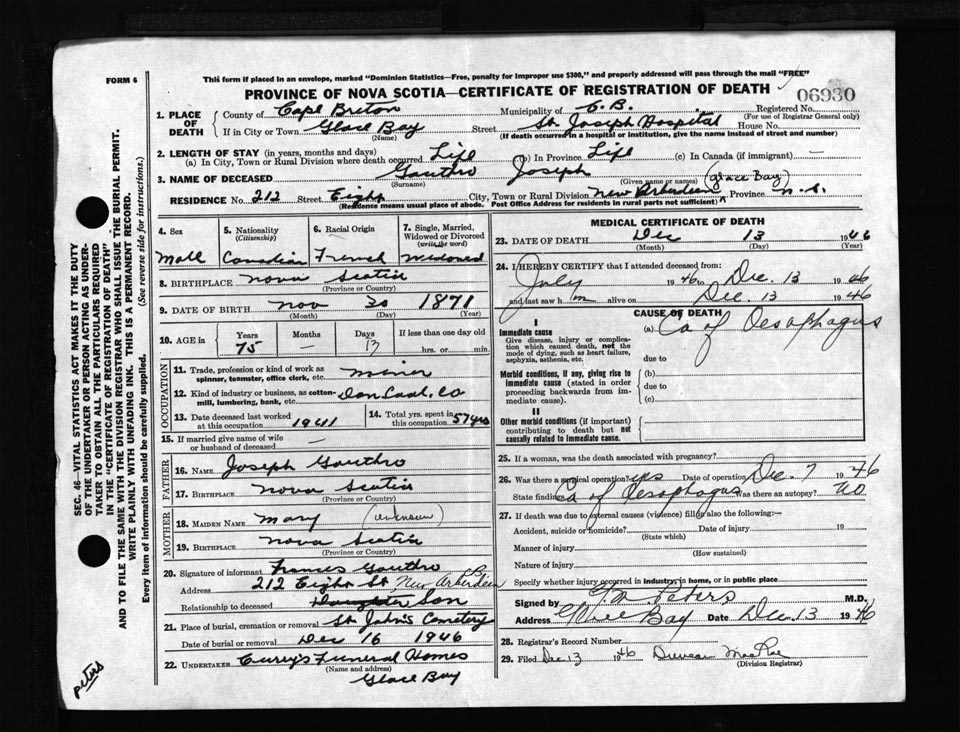 FORM 6
This form if placed in an envelope, marked "Dominion Statistics—Free, penalty for improper use $300," and properly addressed will pass through the mail "FREE"
PROVINCE OF NOVA SCOTIA—CERTIFICATE OF REGISTRATION OF DEATH
06930
1. PLACE OF DEATH
County of Cape Breton Municipality of C.B. Registered No.
(For use of Registrar General only)
If in City or Town Glace Bay Street St. Joseph Hospital House No.
(Name) (If death occurred in a hospital or institution, give the name instead of street and number)
2. LENGTH OF STAY (in years, months and days)
(a) In City, Town or Rural Division where death occurred Life (b) In Province Life (c) In Canada (if immigrant) —
3. NAME OF DECEASED Gouthro Joseph
(Surname) (Given name or names) (Glace Bay)
RESIDENCE No. 212 Street Eight City, Town or Rural Division New Aberdeen Province N.S.
(Residence means usual place of abode. Post Office Address for residents in rural parts not sufficient)
4. Sex
Male
5. Nationality
(Citizenship)
Canadian
6. Racial Origin
French
7. Single, Married, Widowed or Divorced
(write the word)
Widowed
8. BIRTHPLACE Nova Scotia
(Province or Country)
9. DATE OF BIRTH Nov 30 1871
(Month) (Day) (Year)
10. AGE in Years Months Days If less than one day old
75 — 13 hrs. or min.
OCCUPATION
11. Trade, profession or kind of work as spinner, teamster, office clerk, etc. Miner
12. Kind of industry or business, as cotton-mill, lumbering, bank, etc. Dom Coal Co
13. Date deceased last worked at this occupation 1941
14. Total yrs. spent in this occupation 57 yrs
15. If married give name of wife or husband of deceased —
FATHER
16. NAME Joseph Gouthro
17. BIRTHPLACE Nova Scotia
(Province or Country)
MOTHER
18. MAIDEN NAME Mary (unknown)
19. BIRTHPLACE Nova Scotia
(Province or Country)
20. Signature of informant Francis Gouthro
Address 212 Eight St New Aberdeen C.B.
Relationship to deceased Daughter Son
21. Place of burial, cremation or removal St. John's Cemetery
Date of burial or removal Dec 16 1946
22. UNDERTAKER Curry's Funeral Homes
(Name and address)
Glace Bay
MEDICAL CERTIFICATE OF DEATH
23. DATE OF DEATH Dec 13 1946
(Month) (Day) (Year)
24. I HEREBY CERTIFY that I attended deceased from:
July 1946 to Dec. 13 1946
and last saw him alive on Dec. 13 1946
CAUSE OF DEATH
I
Immediate cause
Give disease, injury or complication which caused death, not the mode of dying, such as heart failure, asphyxia, asthenia, etc.
(a) Ca of Oesophagus
due to
Morbid conditions, if any, giving rise to immediate cause (stated in order proceeding backwards from immediate cause).
(b)
due to
(c)
II
Other morbid conditions (if important) contributing to death but not causally related to immediate cause.
25. If a woman, was the death associated with pregnancy?
26. Was there a surgical operation? yes Date of operation Dec. 7 1946
State findings Ca of Oesophagus Was there an autopsy? No
27. If death was due to external causes (violence) fill in also the following:—
Accident, suicide or homicide? Date of injury 19
(State which)
Manner of injury
(How sustained)
Nature of injury
Specify whether injury occurred in industry, in home, or in public place
Signed by Peters M.D.
Address Glace Bay Date Dec. 13 1946
28. Registrar's Record Number
29. Filed Dec 13 1946 Duncan MacRae
(Division Registrar)
SEC. 46—VITAL STATISTICS ACT MAKES IT THE DUTY
OF THE UNDERTAKER OR PERSON ACTING AS UNDER-
TAKER TO OBTAIN ALL THE PARTICULARS REQUIRED
IN THE "CERTIFICATE OF REGISTRATION OF DEATH"
AND TO FILE THE SAME WITH THE DIVISION REGISTRAR WHO SHALL ISSUE THE BURIAL PERMIT.
WRITE PLAINLY WITH UNFADING INK. THIS IS A PERMANENT RECORD.
Every item of information should be carefully supplied. (See reverse side for instructions.)
Peters